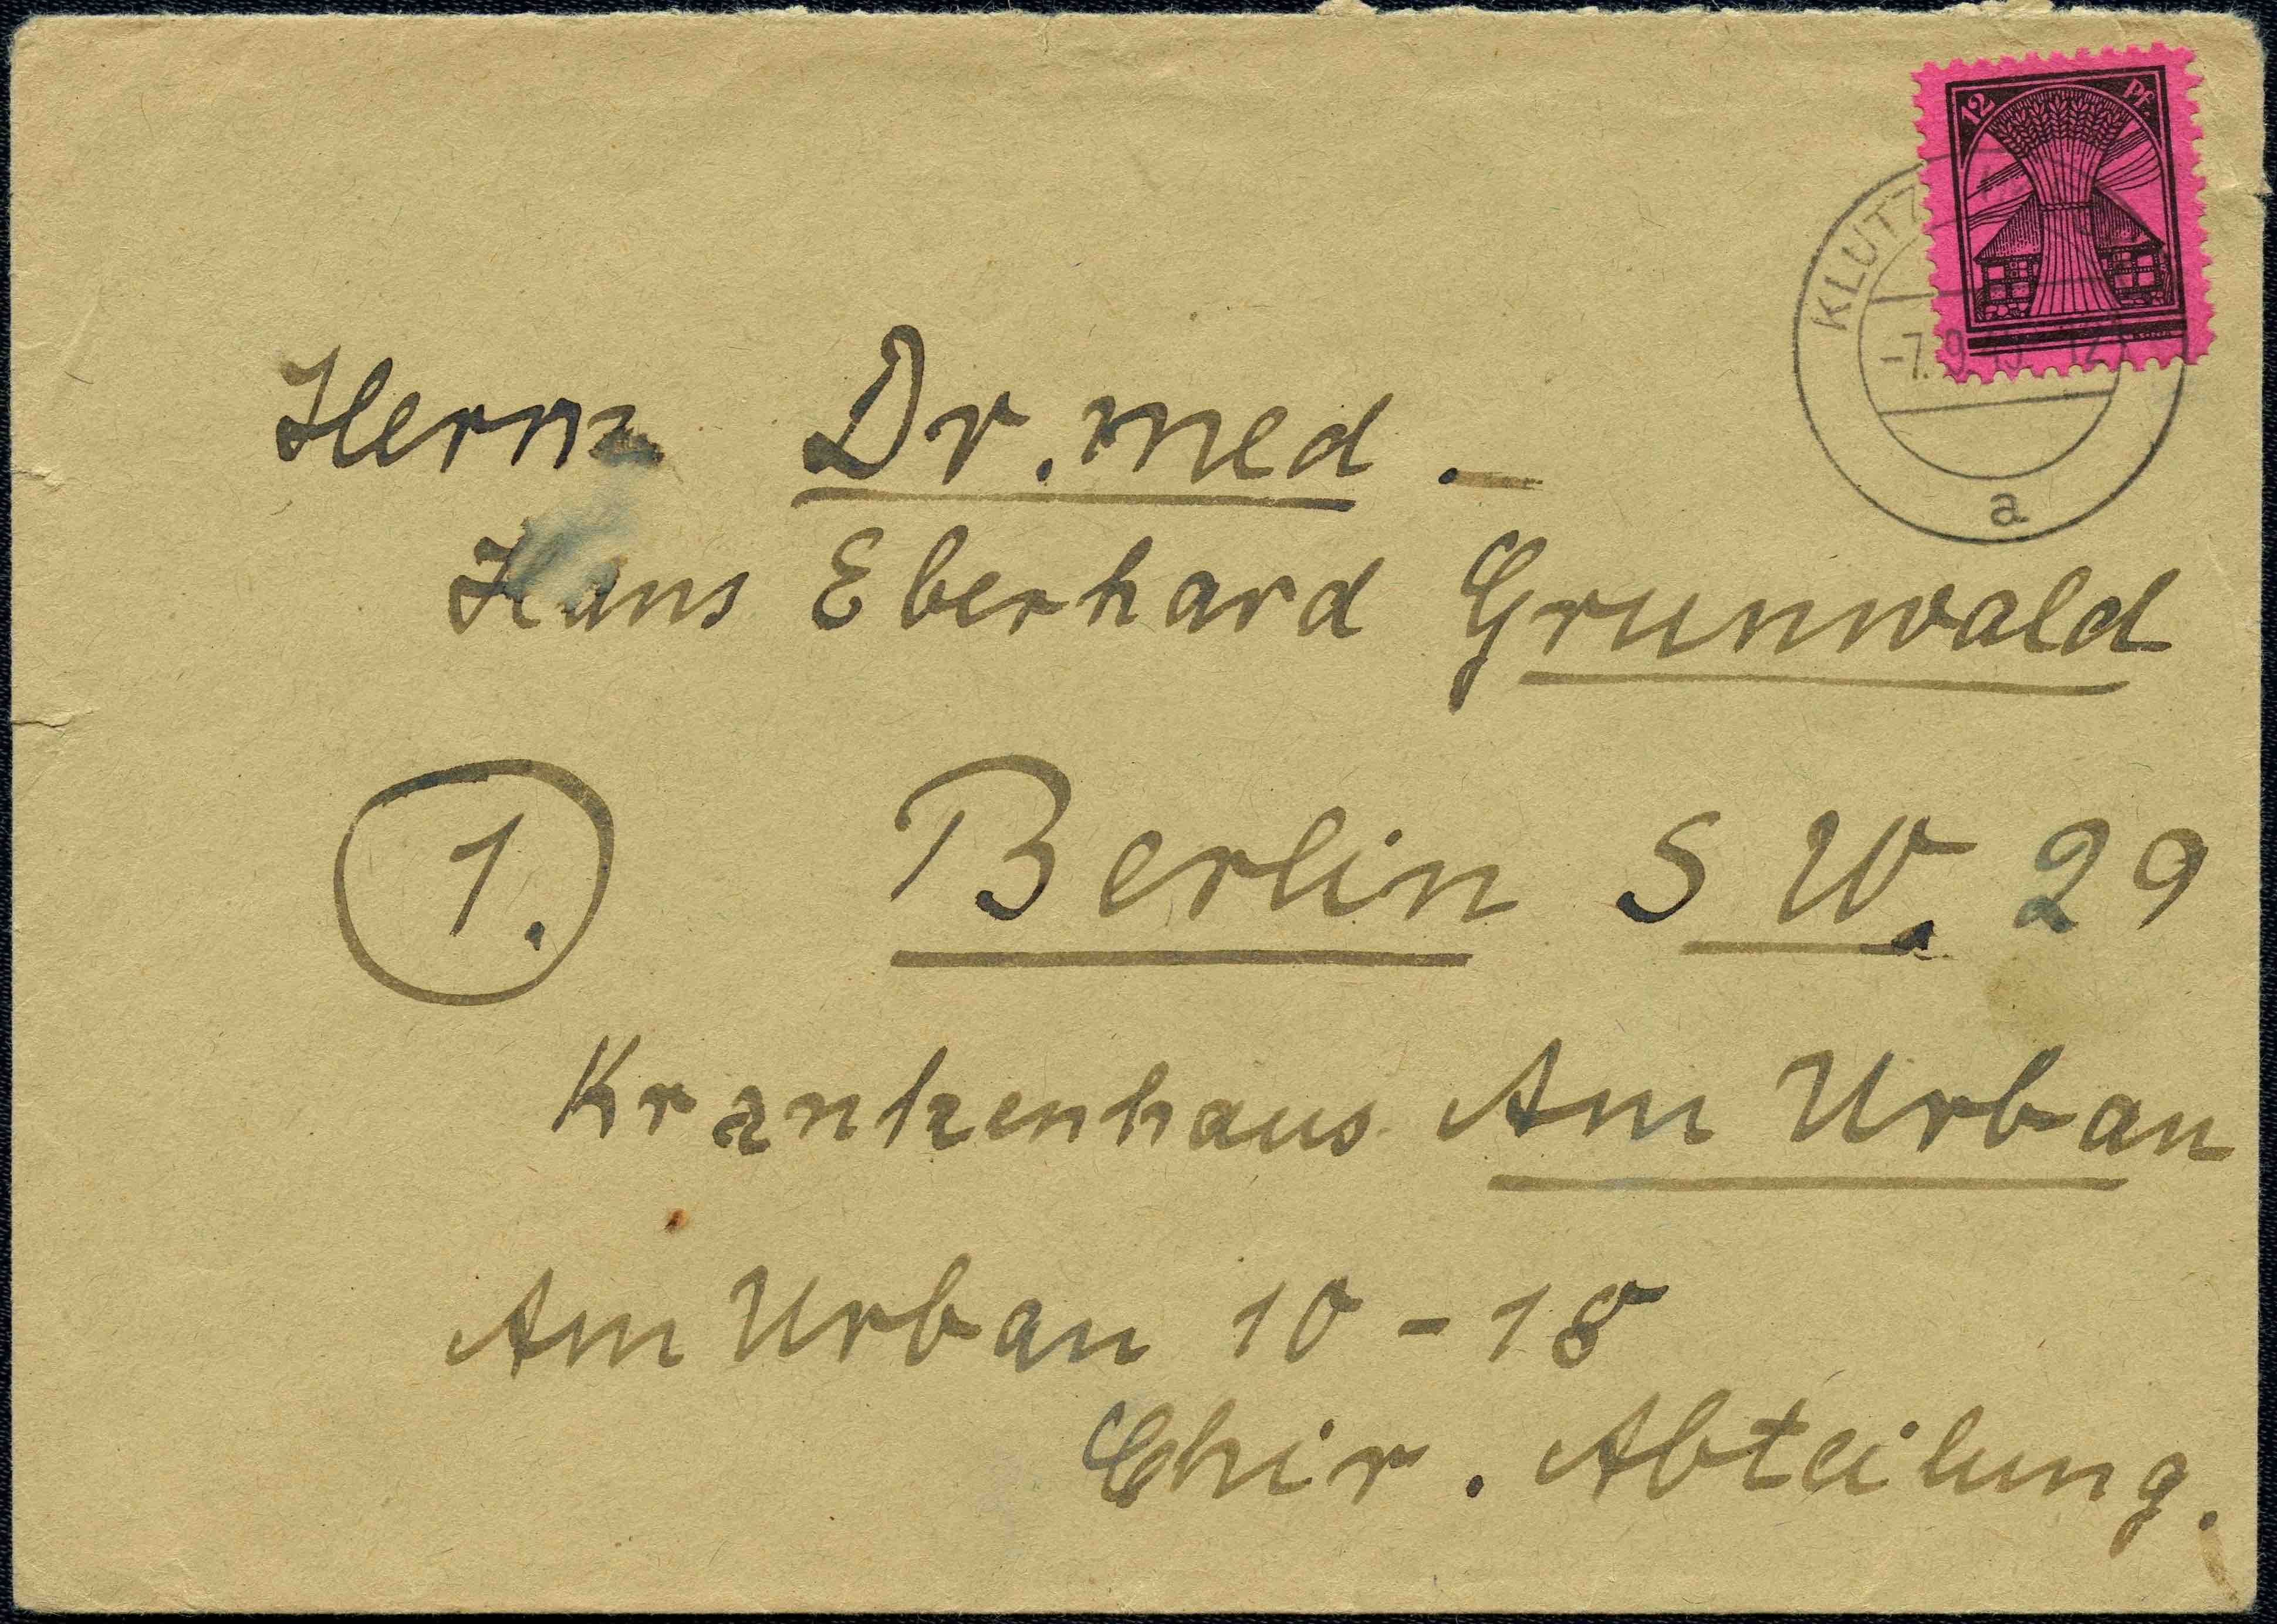 12 Pf.
KLÜTZ
-7. 9. 45. 12
a
Herrn Dr. med.
Hans Eberhard Grunwald
1. Berlin S W. 29
Krankenhaus Am Urban
Am Urban 10 - 18
Chir. Abteilung.